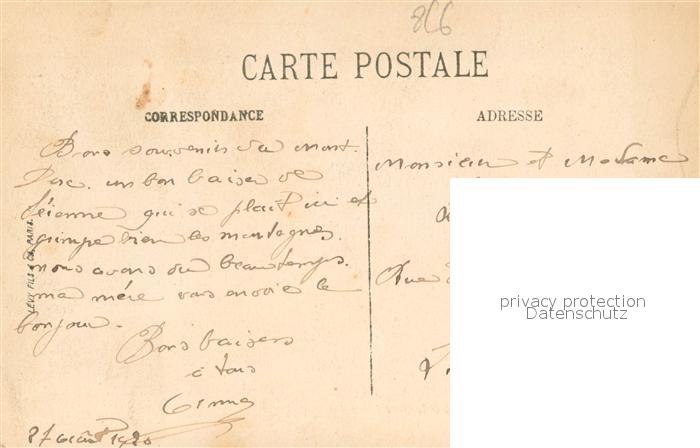 866
CARTE POSTALE
CORRESPONDANCE
ADRESSE
Bons souvenirs du Mont.
Dore. un bon baiser de
qui se plait ici et
grimpe bien les montagnes.
nous avons du beau temps.
ma mère vous envoie le
bonjour.
Bons baisers
à tous
27 août 1920
LEVY FILS & Cie PARIS
Monsieur et Madame
Rue
privacy protection
Datenschutz